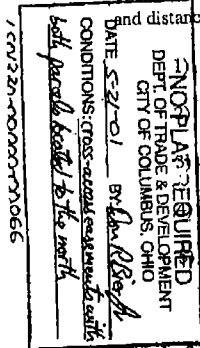 and distanc
NO PLAT REQUIRED
DEPT. OF TRADE & DEVELOPMENT
CITY OF COLUMBUS, OHIO
DATE 5-21-01 BY:
CONDITIONS: cross-access easements with
both parcels located to the north